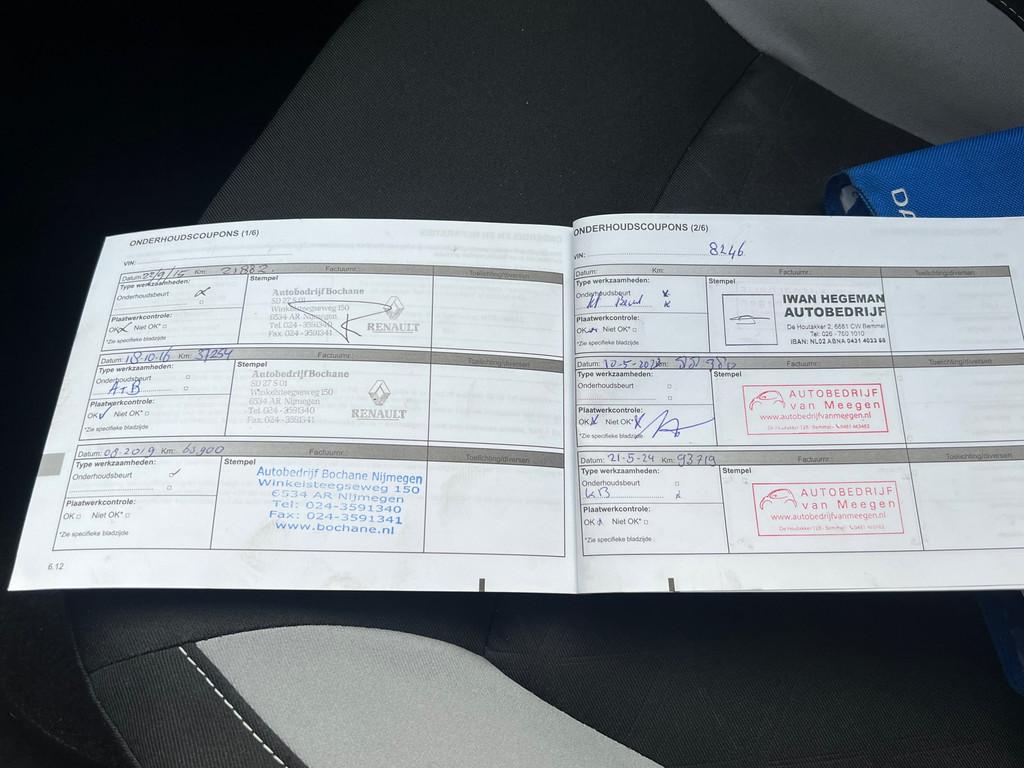 ONDERHOUDSCOUPONS (1/6)
VIN:
Datum: 22/9/15 Km: 21882 Factuurnr.: Toelichting/diversen
Type werkzaamheden:
Onderhoudsbeurt
Stempel
Autobedrijf Bochane
SD 27 S 01
Winkelsteegseweg 150
6534 AR Nijmegen
Tel. 024-3591340
Fax. 024-3591341
RENAULT
Plaatwerkcontrole:
OK Niet OK*
*Zie specifieke bladzijde
Datum: 18.10.16 Km: 37254 Factuurnr.: Toelichting/diversen
Type werkzaamheden:
Onderhoudsbeurt
Stempel
Autobedrijf Bochane
SD 27 S 01
Winkelsteegseweg 150
6534 AR Nijmegen
Tel. 024-3591340
Fax. 024-3591341
RENAULT
Plaatwerkcontrole:
OK Niet OK*
*Zie specifieke bladzijde
Datum: 08.2019 Km: 63,900 Factuurnr.: Toelichting/diversen
Type werkzaamheden:
Onderhoudsbeurt
Stempel
Autobedrijf Bochane Nijmegen
Winkelsteegseweg 150
6534 AR Nijmegen
Tel: 024-3591340
Fax: 024-3591341
www.bochane.nl
Plaatwerkcontrole:
OK Niet OK*
*Zie specifieke bladzijde
6.12
ONDERHOUDSCOUPONS (2/6)
VIN: 8246
Datum: Km: Factuurnr.: Toelichting/diversen
Type werkzaamheden:
Onderhoudsbeurt
Stempel
IWAN HEGEMAN
AUTOBEDRIJF
De Houtakker 2, 6681 CW Bemmel
Tel: 026 - 760 1010
IBAN: NL02 ABNA 0431 4033 88
Plaatwerkcontrole:
OK Niet OK*
*Zie specifieke bladzijde
Datum: Km: Factuurnr.: Toelichting/diversen
Type werkzaamheden:
Onderhoudsbeurt
Stempel
AUTOBEDRIJF
van Meegen
www.autobedrijfvanmeegen.nl
Plaatwerkcontrole:
OK Niet OK*
*Zie specifieke bladzijde
Datum: 21-5-24 Km: 93719 Factuurnr.: Toelichting/diversen
Type werkzaamheden:
Onderhoudsbeurt
Stempel
AUTOBEDRIJF
van Meegen
www.autobedrijfvanmeegen.nl
Plaatwerkcontrole:
OK Niet OK*
*Zie specifieke bladzijde
DA